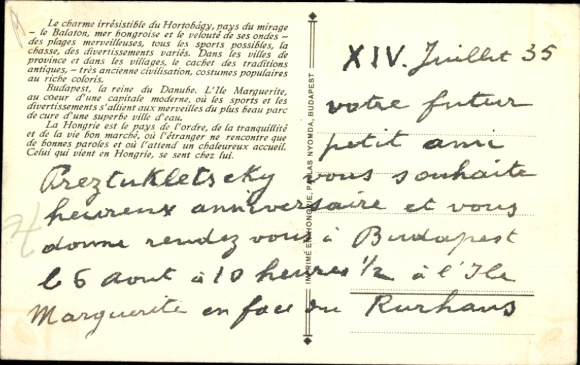 Le charme irrésistible du Hortobágy, pays du mirage
– le Balaton, mer hongroise et le velouté de ses ondes –
des plages merveilleuses, tous les sports possibles, la
chasse, des divertissements variés. Dans les villes de
province et dans les villages, le cachet des traditions
antiques, – très ancienne civilisation, costumes populaires
au riche coloris.
Budapest, la reine du Danube. L'Ile Marguerite,
au coeur d'une capitale moderne, où les sports et les
divertissements s'allient aux merveilles du plus beau parc
de cure d'une superbe ville d'eau.
La Hongrie est le pays de l'ordre, de la tranquillité
et de la vie bon marché, où l'étranger ne rencontre que
de bonnes paroles et où l'attend un chaleureux accueil.
Celui qui vient en Hongrie, se sent chez lui.
IMPRIMÉ EN HONGRIE, PALLAS NYOMDA, BUDAPEST
XIV. Juillet 35
votre futur
petit ami
Preztukletscky vous souhaite
heureux anniversaire et vous
donne rendez vous à Budapest
le 6 Aout à 10 heures 1/2 à l'Ile
Marguerite en face du Kurhaus